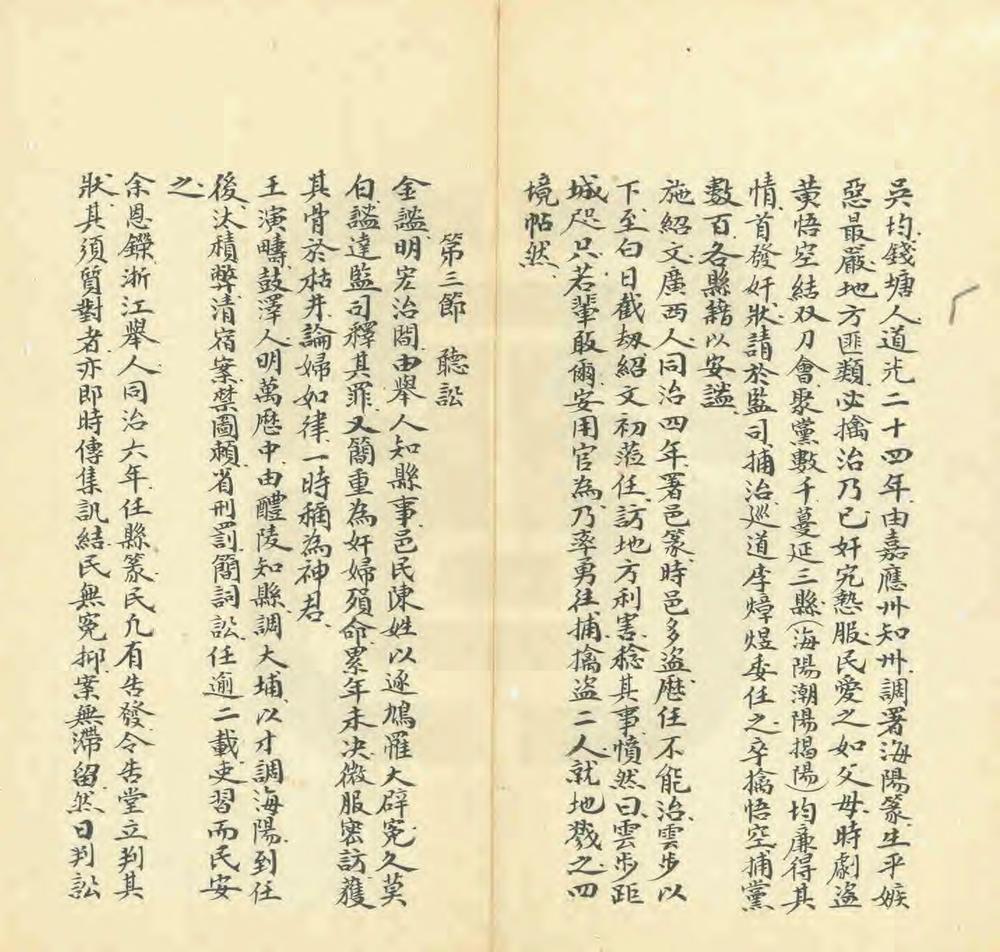 吳均錢塘人道光二十四年由嘉應州知州調署海陽篆生平嫉
惡最嚴地方匪類必擒治乃已奸宄慹服民愛之如父母時劇盜
黄悟空結双刀會聚黨數千蔓延三縣(海陽潮陽揭陽)均廉得其
情首發奸狀請於監司捕治巡道李煒煜委任之卒擒悟空捕黨
數百各縣藉以安謐
施紹文廣西人同治四年署邑篆時邑多盜歷任不能治雲步以
下至白日截刼紹文初蒞任訪地方利害稔其事憤然曰雲步距
城咫只若輩敢爾安用官為乃率勇往捕擒盜二人就地戮之四
境帖然
第三節 聽訟
金謐明宏治間由舉人知縣事邑民陳姓以逐鳩罹大辟冤久莫
白謐達監司釋其罪又簡重為奸婦殞命累年未决微服密訪獲
其骨於枯井論婦如律一時稱為神君
王演疇鼓澤人明萬歷中由醴陵知縣調大埔以才調海陽到任
後汰積弊清宿案禁圖賴省刑罰簡詞訟任逾二載吏習而民安
之
余恩鑅浙江舉人同治六年任縣篆民凢有告發令告堂立判其
狀其須質對者亦即時傳集訊結民無冤抑案無滯留然日判訟